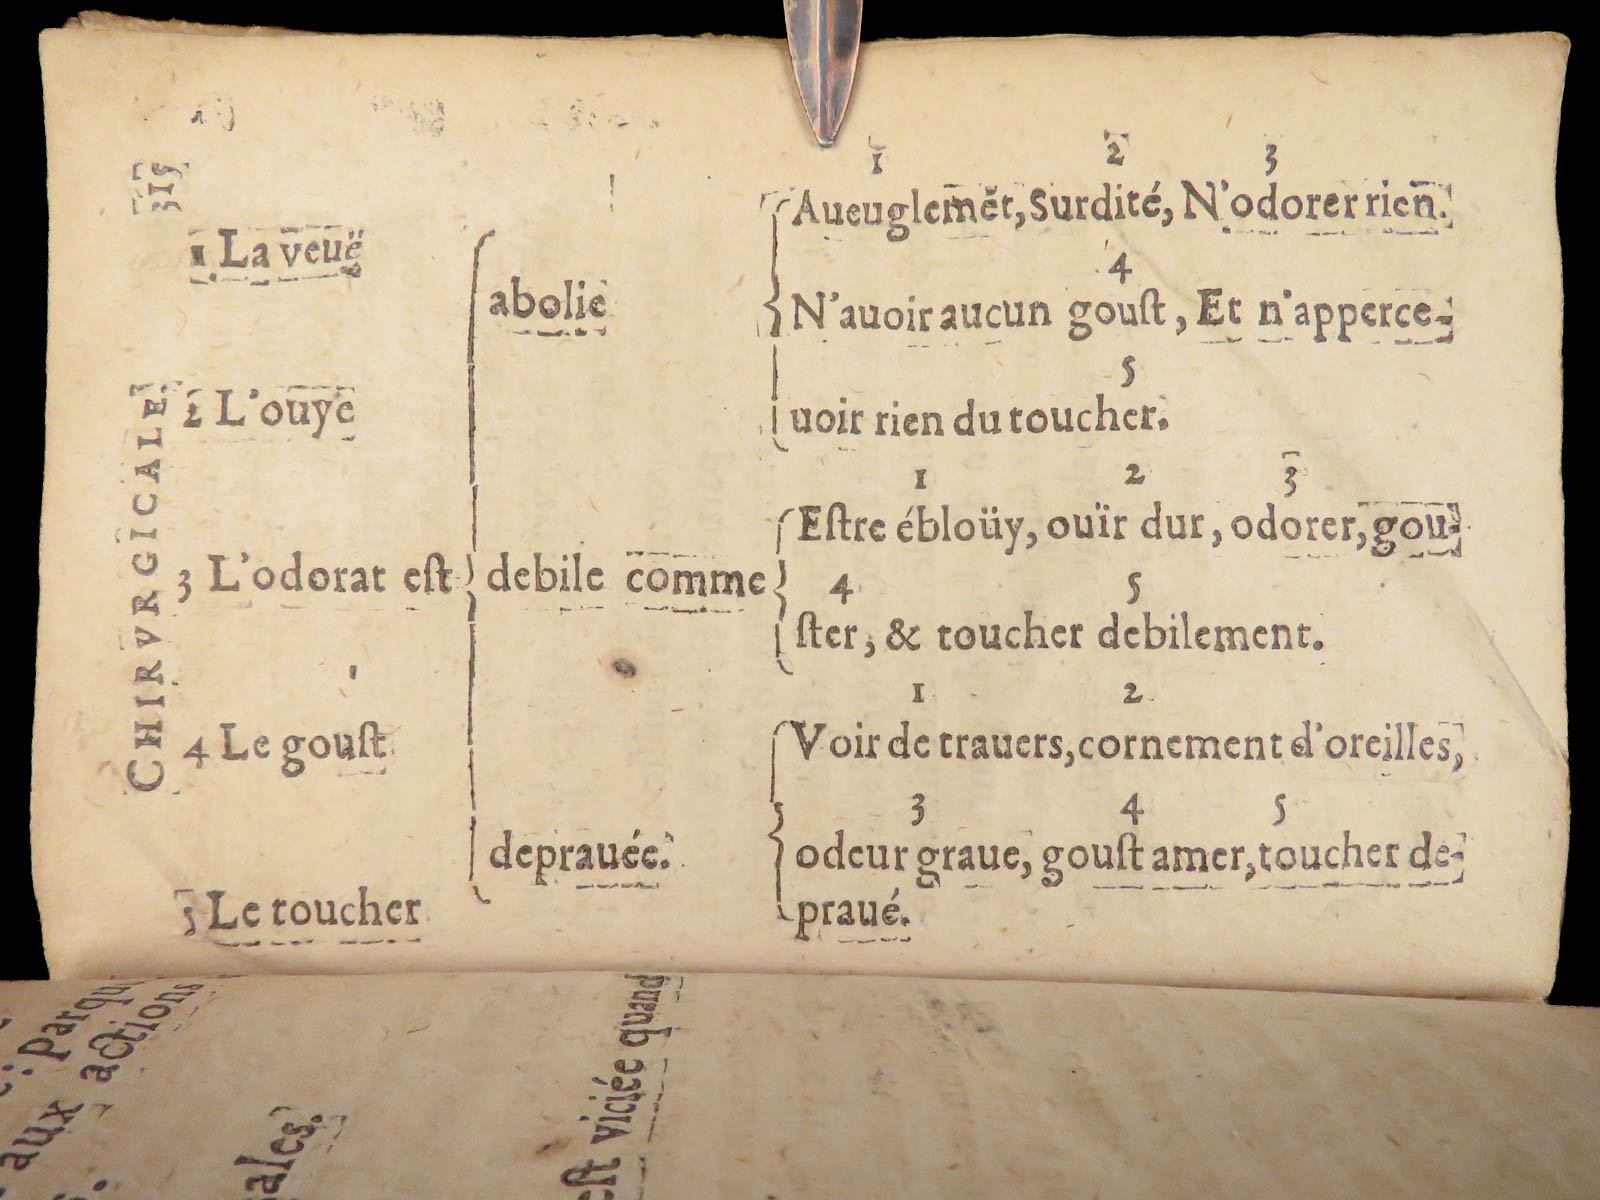 CHIRVRGICALE. 315
1 La veuë
2 L'ouye
3 L'odorat est
4 Le goust
5 Le toucher
abolie
debile comme
deprauée.
1 2 3
Aueuglemẽt, Surdité, N'odorer rien.
4
N'auoir aucun goust, Et n'apperce-
5
uoir rien du toucher.
1 2 3
Estre ébloüy, ouïr dur, odorer, gou-
4 5
ster, & toucher debilement.
1 2
Voir de trauers, cornement d'oreilles,
3 4 5
odeur graue, goust amer, toucher de-
praué.
aux actions
ales.
est viciée quand